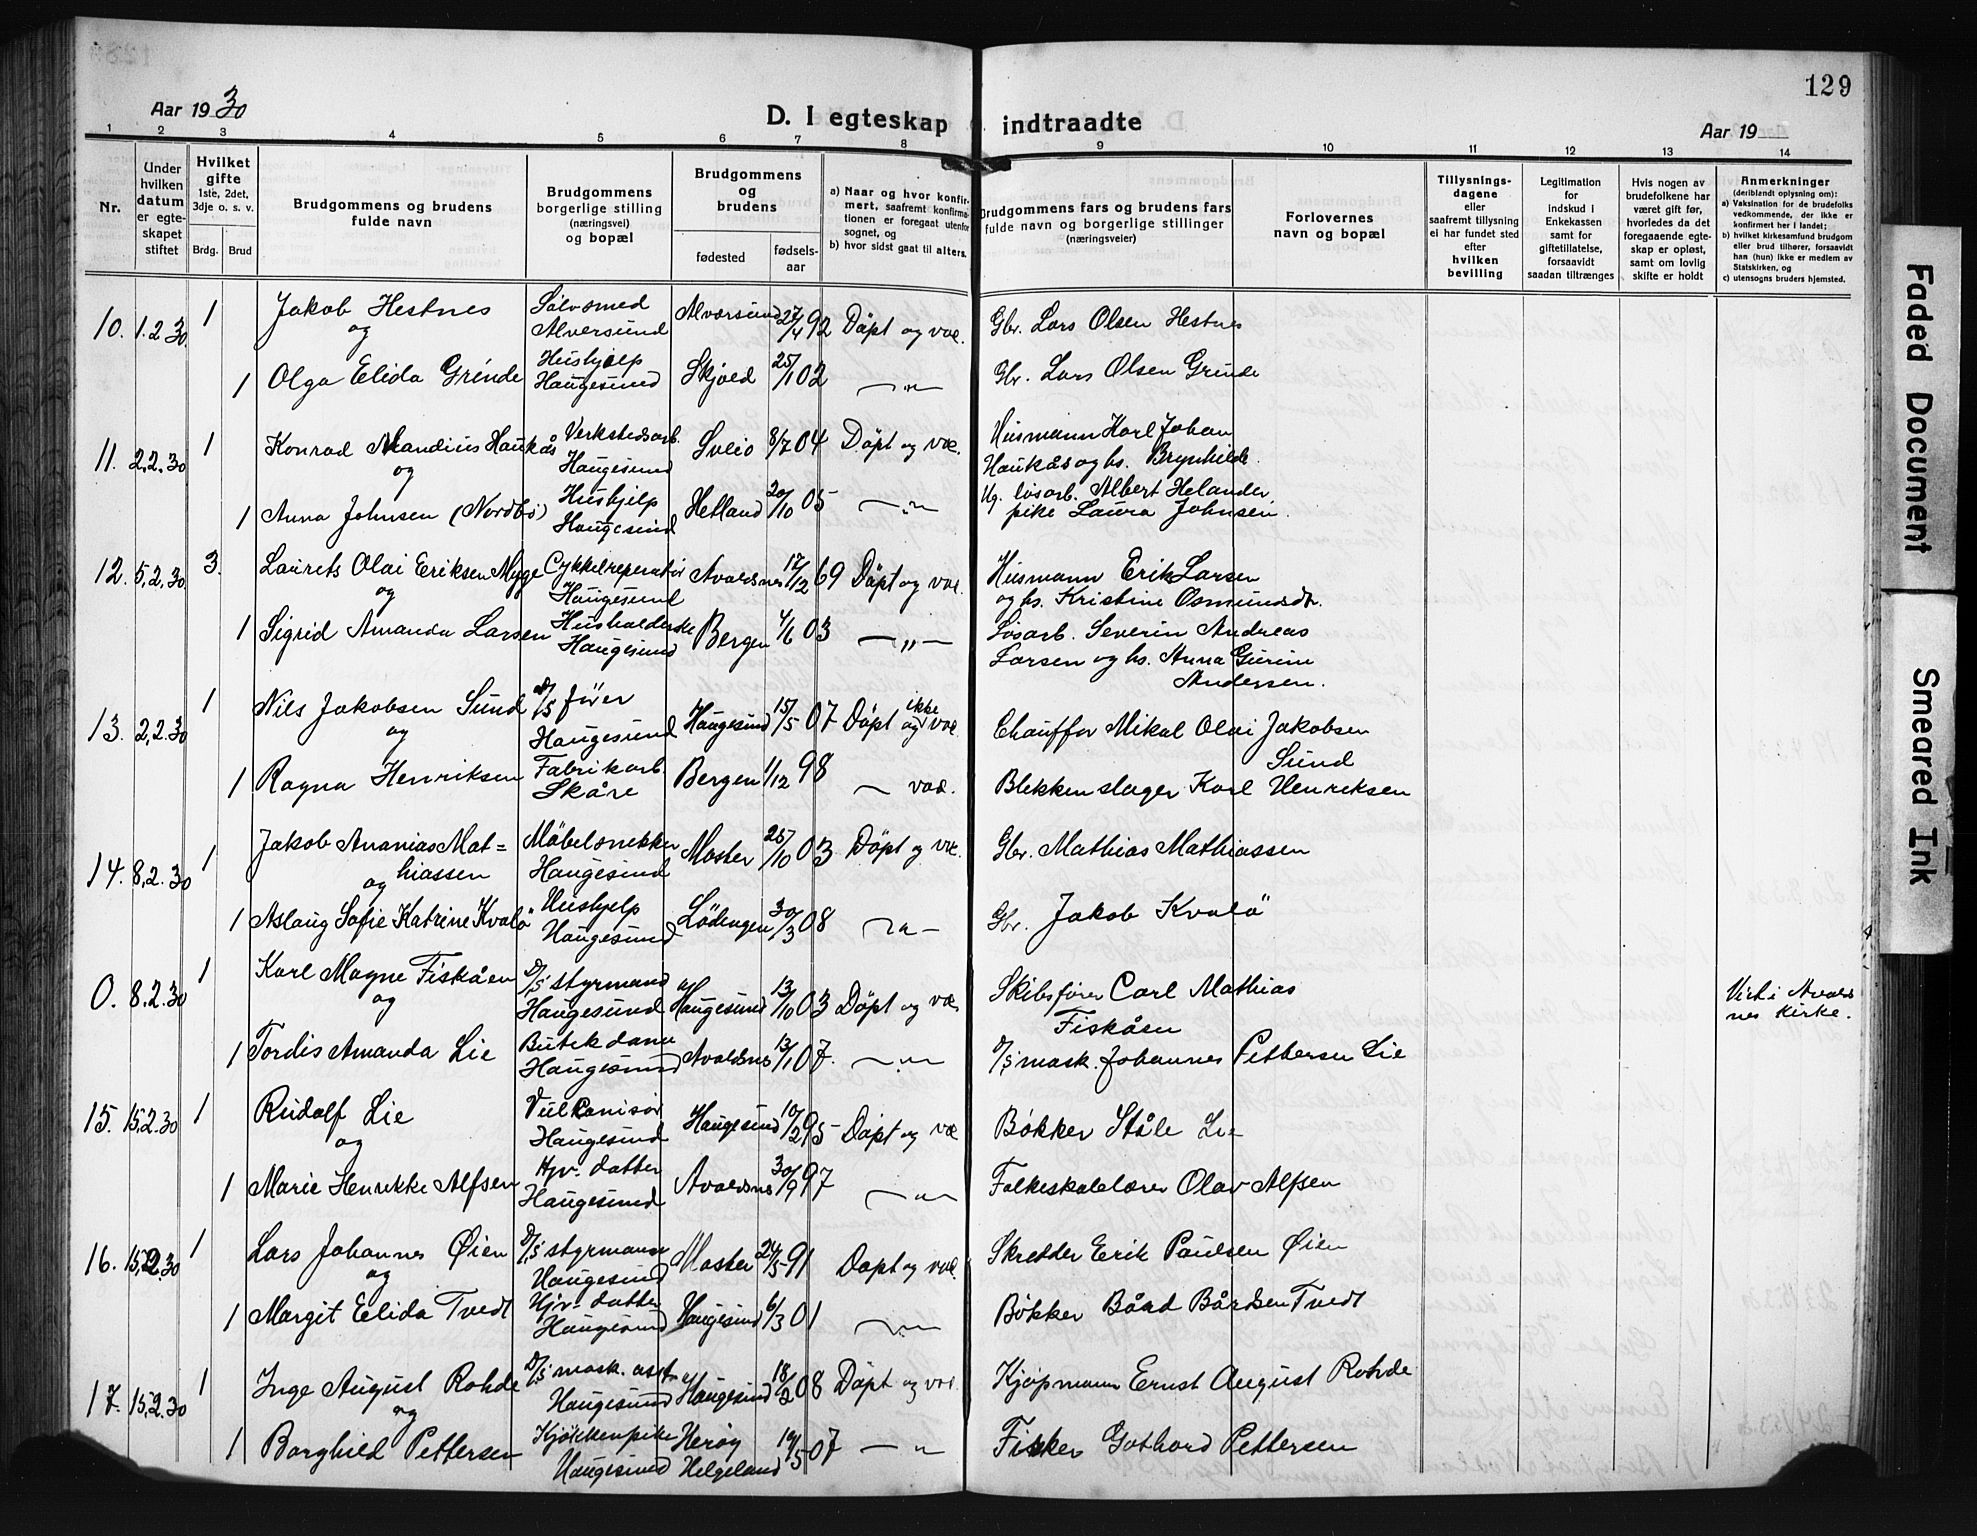 129
Aar 1930
D. I egteskap indtraadte
Aar 19
1 2 3 4 5 6 7 8 9 10 11 12 13 14
Nr.
Under hvilken datum er egteskapet stiftet
Hvilket gifte 1ste, 2det, 3dje o. s. v.
Brdg. Brud
Brudgommens og brudens fulde navn
Brudgommens borgerlige stilling (næringsvei) og bopæl
Brudgommens og brudens
fødested
fødselsaar
a) Naar og hvor konfirmert, saafremt konfirmationen er foregaat utenfor sognet, og
b) hvor sidst gaat til alters.
Brudgommens fars og brudens fars fulde navn og borgerlige stillinger (næringsveier)
Forlovernes navn og bopæl
Tillysningsdagene eller saafremt tillysning ei har fundet sted efter hvilken bevilling
Legitimation for indskud i Enkekassen samt for giftetillatelse, forsaavidt saadan tiltrænges
Hvis nogen av brudefolkene har været gift før, hvorledes da det foregaaende egteskap er opløst, samt om lovlig skifte er holdt
Anmerkninger (deriblandt oplysning om):
a) Vaksination for de brudefolks vedkommende, der ikke er konfirmert her i landet;
b) hvilket kirkesamfund brudgom eller brud tilhører, forsaavidt han (hun) ikke er medlem av Statskirken, og
c) utensogns bruders hjemsted.
10. 1.2.30 1 Jakob Hestnes Sølvsmed Alversund Alversund 27/4 92 Döpt og vac. Gbr. Lars Olsen Hestnes
og
1 Olga Elida Grinde Hushjelp Haugesund Skjold 25/1 02 — " — Gbr. Lars Olsen Grinde
11. 2.2.30 1 Konrad Mandius Haukås Verkstedsarb. Haugesund Sveio 8/7 04 Döpt og vac. Husmann Karl Johan Haukås og hs. Brynhilde
og
1 Anna Johnsen (Nordbö) Hushjelp Haugesund Hetland 20/10 05 — " — Ug. løsarb. Albert Helander, pike Laura Johnsen.
12. 5.2.30 3. Laurits Olai Eriksen Myge Cykkelreperatör Haugesund Avaldsnes 17/12 69 Döpt og vac. Husmann Erik Larsen og hs. Kristine Osmundsdtr.
og
1 Sigrid Amanda Larsen Husholderske Haugesund Bergen 4/6 03 — " — Løsarb. Severin Andreas Larsen og hs. Anna Gurine Andersen.
13. 2.2.30 1 Nils Jakobsen Sund D/S fører Haugesund Haugesund 15/5 07 Döpt og ikke vac. Chauffør Mikal Olai Jakobsen Sund
og
1 Ragna Henriksen Fabrikarb. Skåre Bergen 1/12 98 — vac. Blikkenslager Karl Henriksen
14. 8.2.30 1 Jakob Ananias Mathiassen Möbelsnekker Haugesund Moster 25/10 03 Döpt og vac. Gbr. Mathias Mathiassen
og
1 Aslaug Sofie Katrine Kvalö Hushjelp Haugesund Lödingen 30/3 08 — " — Gbr. Jakob Kvalö
0. 8.2.30 1 Karl Magne Fiskåen D/S styrmand Haugesund Haugesund 13/10 03 Döpt og vac. Skibsfører Carl Mathias Fiskåen Viet i Avaldsnes kirke.
og
1 Tordis Amanda Lie Butikdame Haugesund Avaldsnes 13/1 07 — " — D/S mask. Johannes Pettersen Lie
15. 15.2.30 1 Rudolf Lie Vulkanisør Haugesund Haugesund 10/2 95 Döpt og vac Bøkker Ståle Lie
og
1 Marie Henrikke Alfsen Hjv. datter Haugesund Avaldsnes 30/9 97 — " — Folkeskolelærer Olav Alfsen
16. 15.2.30 1 Lars Johannes Øien D/S styrmann Haugesund Moster 24/5 91 Döpt og vac. Skredder Erik Paulsen Øien
og
1 Margit Elida Tvedt Hjv. datter Haugesund Haugesund 6/3 01 — " — Bøkker Bård Bårdsen Tvedt
17. 15.2.30 1 Inge August Rohde D/S mask. asst. Haugesund Haugesund 18/2 08 Döpt og vac. Kjøpmann Ernst August Rohde
og
1 Borghild Pettersen Kjøkkenpike Haugesund Herøy Helgeland 19/5 07 — " — Fisker Gothard Pettersen
Faded Document
Smeared Ink